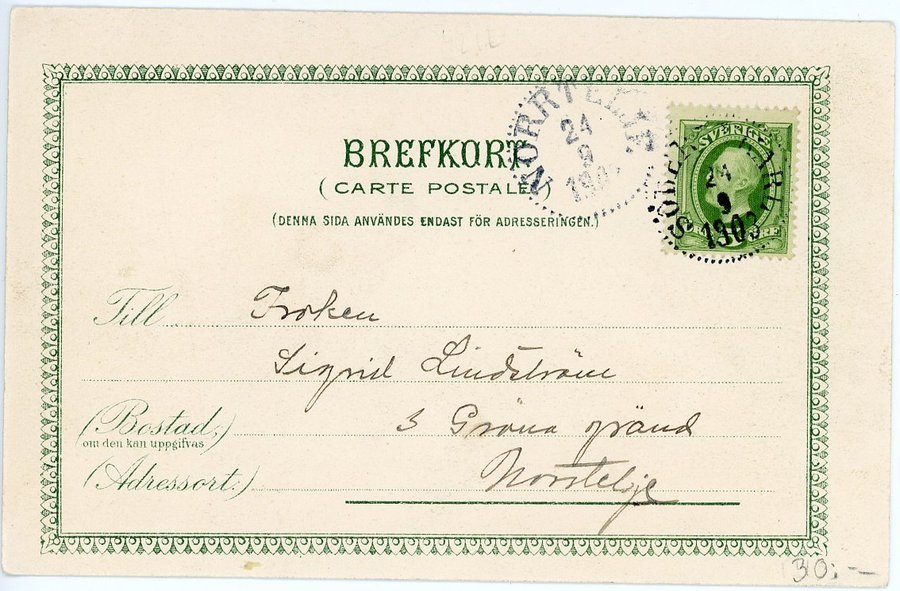 BREFKORT
(CARTE POSTALE)
(DENNA SIDA ANVÄNDES ENDAST FÖR ADRESSERINGEN.)
NORRTELJE
24
9
190
SVERIGE
SÖDER
24
9
1903
ÖRE
Till Fröken
Sigrid Lindström
(Bostad,) 3 Gröna gränd
om den kan uppgifvas
(Adressort.) Norrtelje
30:-